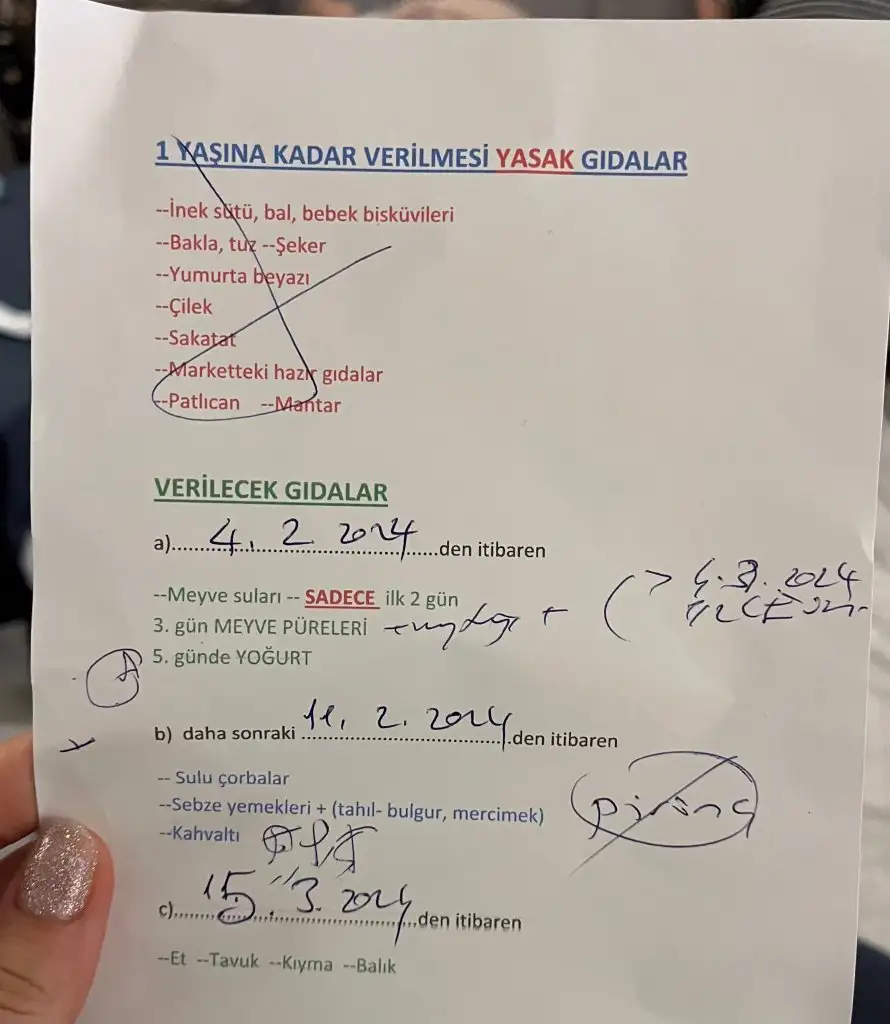 1 YAŞINA KADAR VERİLMESİ YASAK GIDALAR
--İnek sütü, bal, bebek bisküvileri
--Bakla, tuz --Şeker
--Yumurta beyazı
--Çilek
--Sakatat
--Marketteki hazır gıdalar
--Patlıcan --Mantar
VERİLECEK GIDALAR
a)..... 4. 2. 2024 .....den itibaren
--Meyve suları -- SADECE ilk 2 gün
3. gün MEYVE PÜRELERİ
2024
5. günde YOĞURT
b) daha sonraki 11. 2. 2024 .den itibaren
-- Sulu çorbalar
--Sebze yemekleri + (tahıl- bulgur, mercimek)
pirinç
--Kahvaltı
c)..... 15. 3. 2024 .....den itibaren
--Et --Tavuk --Kıyma --Balık